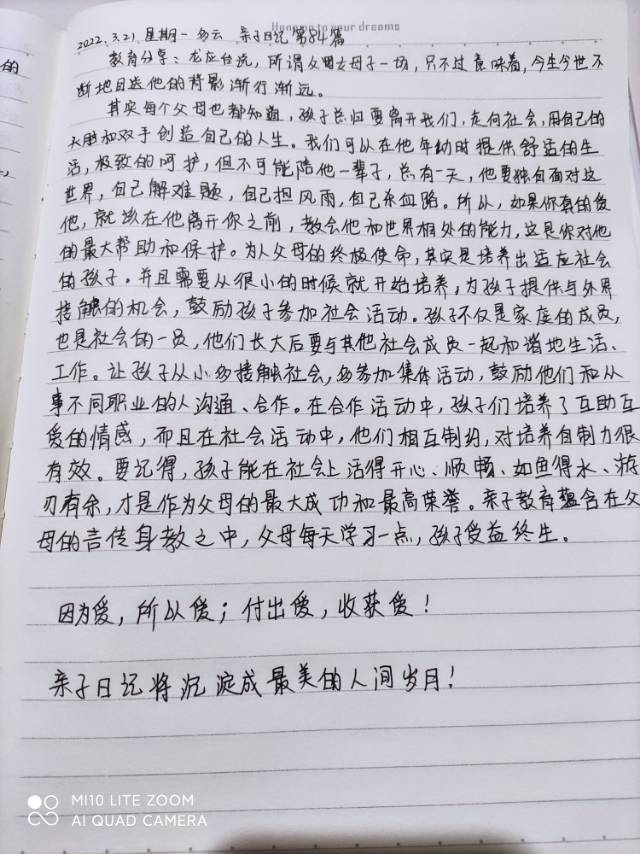 的
Hanging to your dreams
2022.3.21 星期一 多云 亲子日记 第84篇
教育分享：龙应台说，所谓父母女母子一场，只不过意味着，今生今世不
断地目送他的背影渐行渐远。
其实每个父母也都知道，孩子总归要离开我们，走向社会，用自己的
头脑和双手创造自己的人生。我们可以在他年幼时提供舒适的生
活，极致的呵护，但不可能陪他一辈子，总有一天，他要独自面对这
世界，自己解难题，自己担风雨，自己杀血路。所以，如果你真的爱
他，就该在他离开你之前，教会他和世界相处的能力，这是你对他
的最大帮助和保护。为人父母的终极使命，其实是培养出适应社会
的孩子。并且需要从很小的时候就开始培养，为孩子提供与外界
接触的机会，鼓励孩子参加社会活动。孩子不仅是家庭的成员，
也是社会的一员，他们长大后要与其他社会成员一起和谐地生活、
工作。让孩子从小多接触社会，多参加集体活动，鼓励他们和从
事不同职业的人沟通、合作。在合作活动中，孩子们培养了互助互
爱的情感，而且在社会活动中，他们相互制约，对培养自制力很
有效。要记得，孩子能在社会上活得开心、顺畅、如鱼得水、游
刃有余，才是作为父母的最大成功和最高荣誉。亲子教育蕴含在父
母的言传身教之中，父母每天学习一点，孩子受益终生。
因为爱，所以爱；付出爱，收获爱！
亲子日记将沉淀成最美的人间岁月！
MI10 LITE ZOOM
AI QUAD CAMERA